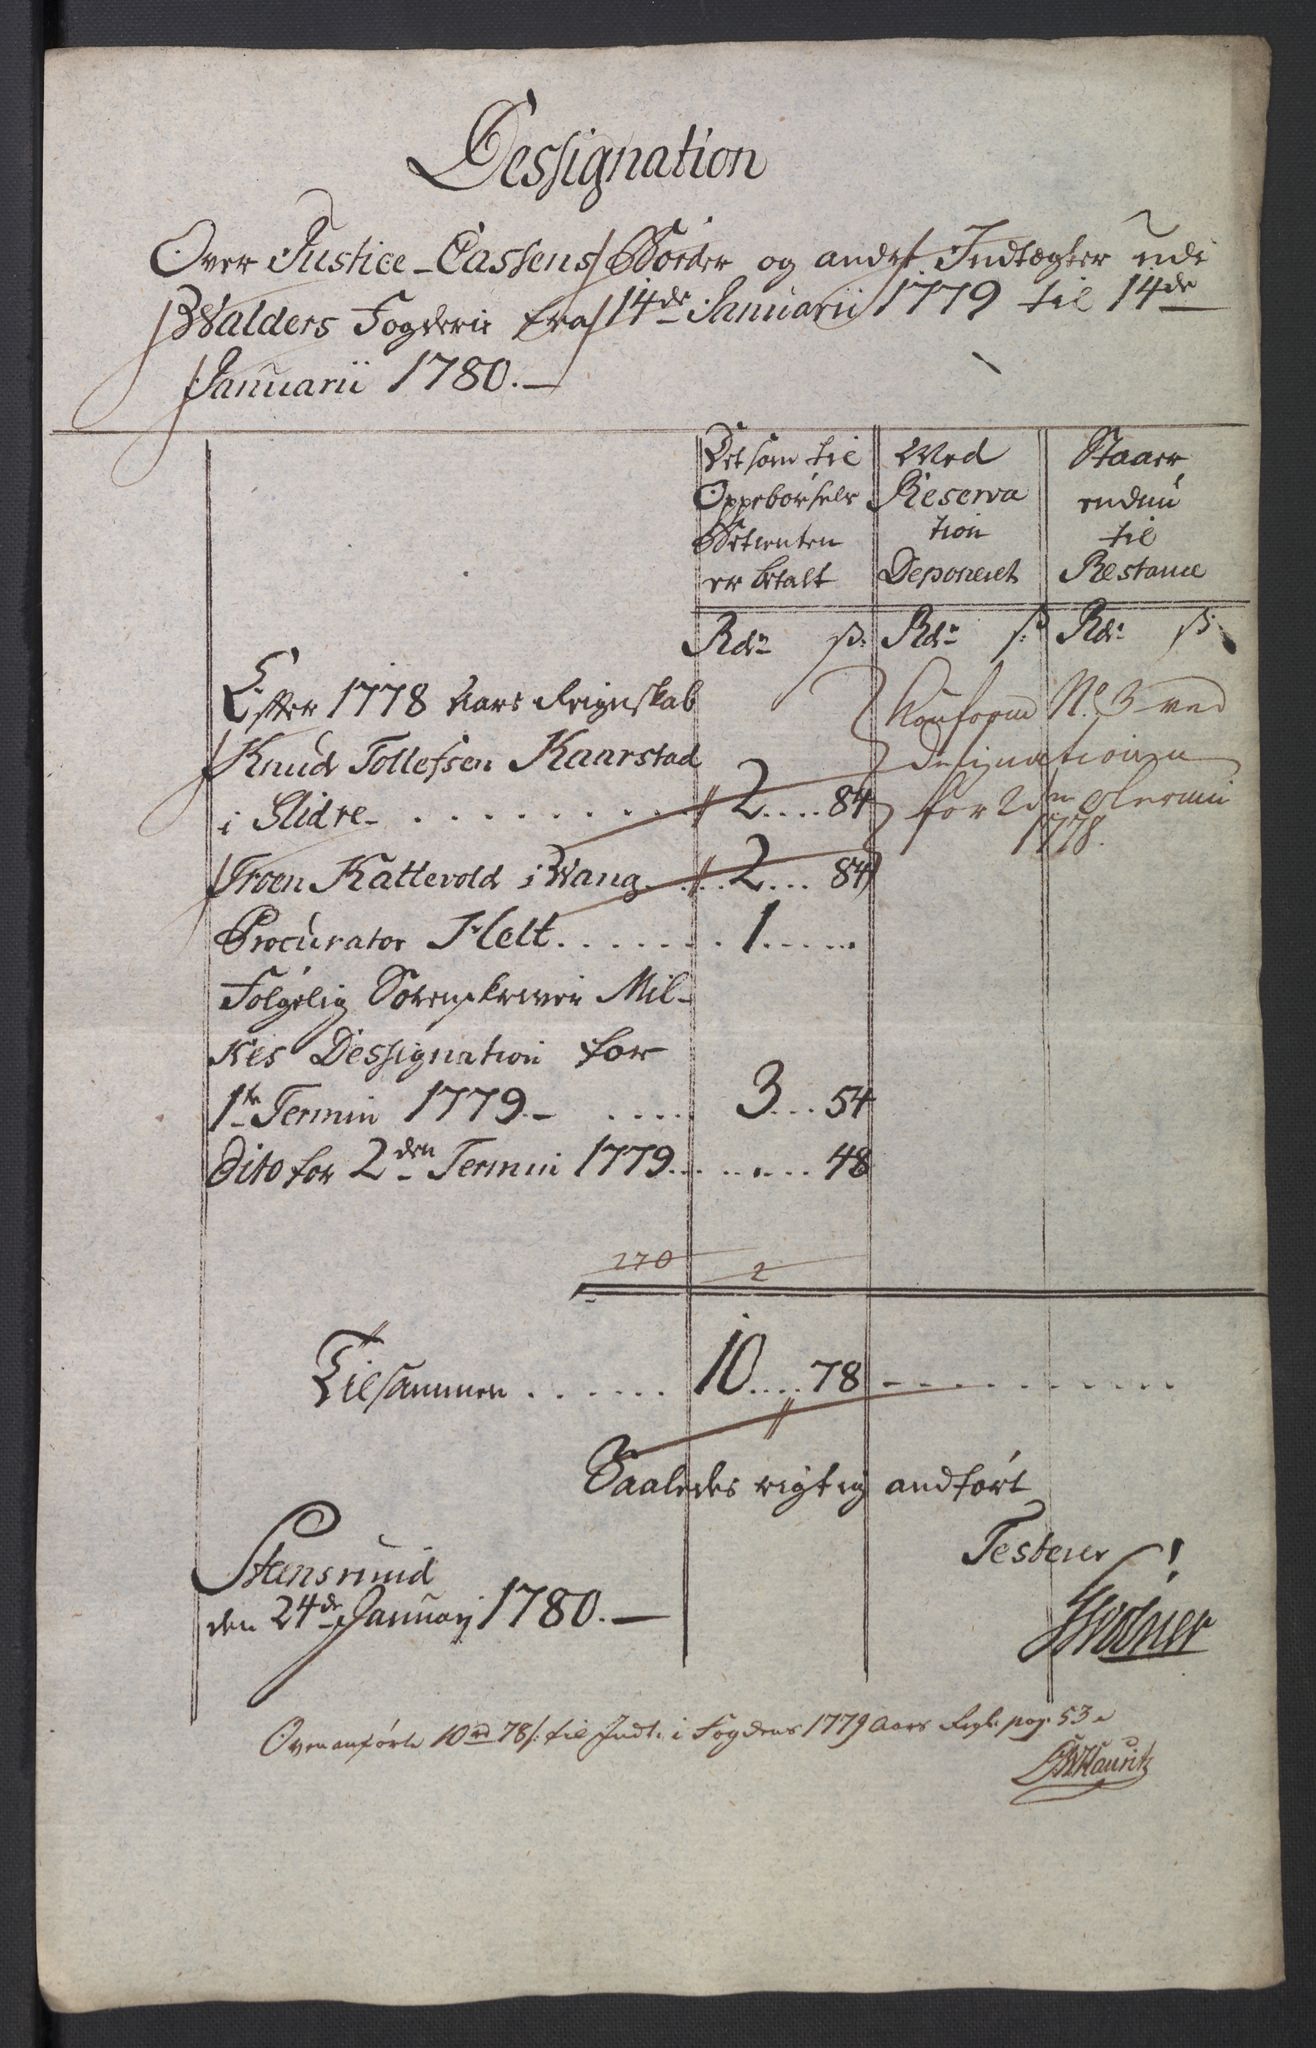 Dessignation
Over Justice-Cassens Bøeder og andet Indtægter udi
Walders Fogderie fra 14de Januarii 1779 til 14de
Januarii 1780.—
Det som til Oppebørsels Betienten er betalt
Wed Reservation Deponeret
Staaer endnu til Restance
Rdr ß: Rdr ß: Rdr ß:
Efter 1778 Aars Reignskab
Knud Tollefsen Kaarstad
i Slidre . . . . . . . . 2 .... 84
Conform No 3 ved
Designationen
for 2den Termin
1778.
Troen Kattevold i Wang . . . 2 .... 84
Procurator Helt . . . . . . . 1 ......
Følgelig Sorenskriver Mil-
kes Dessignation for
1te Termin 1779.— ..... 3 ... 54
Dito for 2den Termin 1779 ........ 48
270 2
Tilsammen . . . . . . 10 .... 78
Saaledes rigtig andført
Stensrund
den 24de Januarj 1780.—
Testerer
Ovenanførte 10 rd 78 ß: til Indt: i Fogdens 1779 Aars Regs: pag: 53